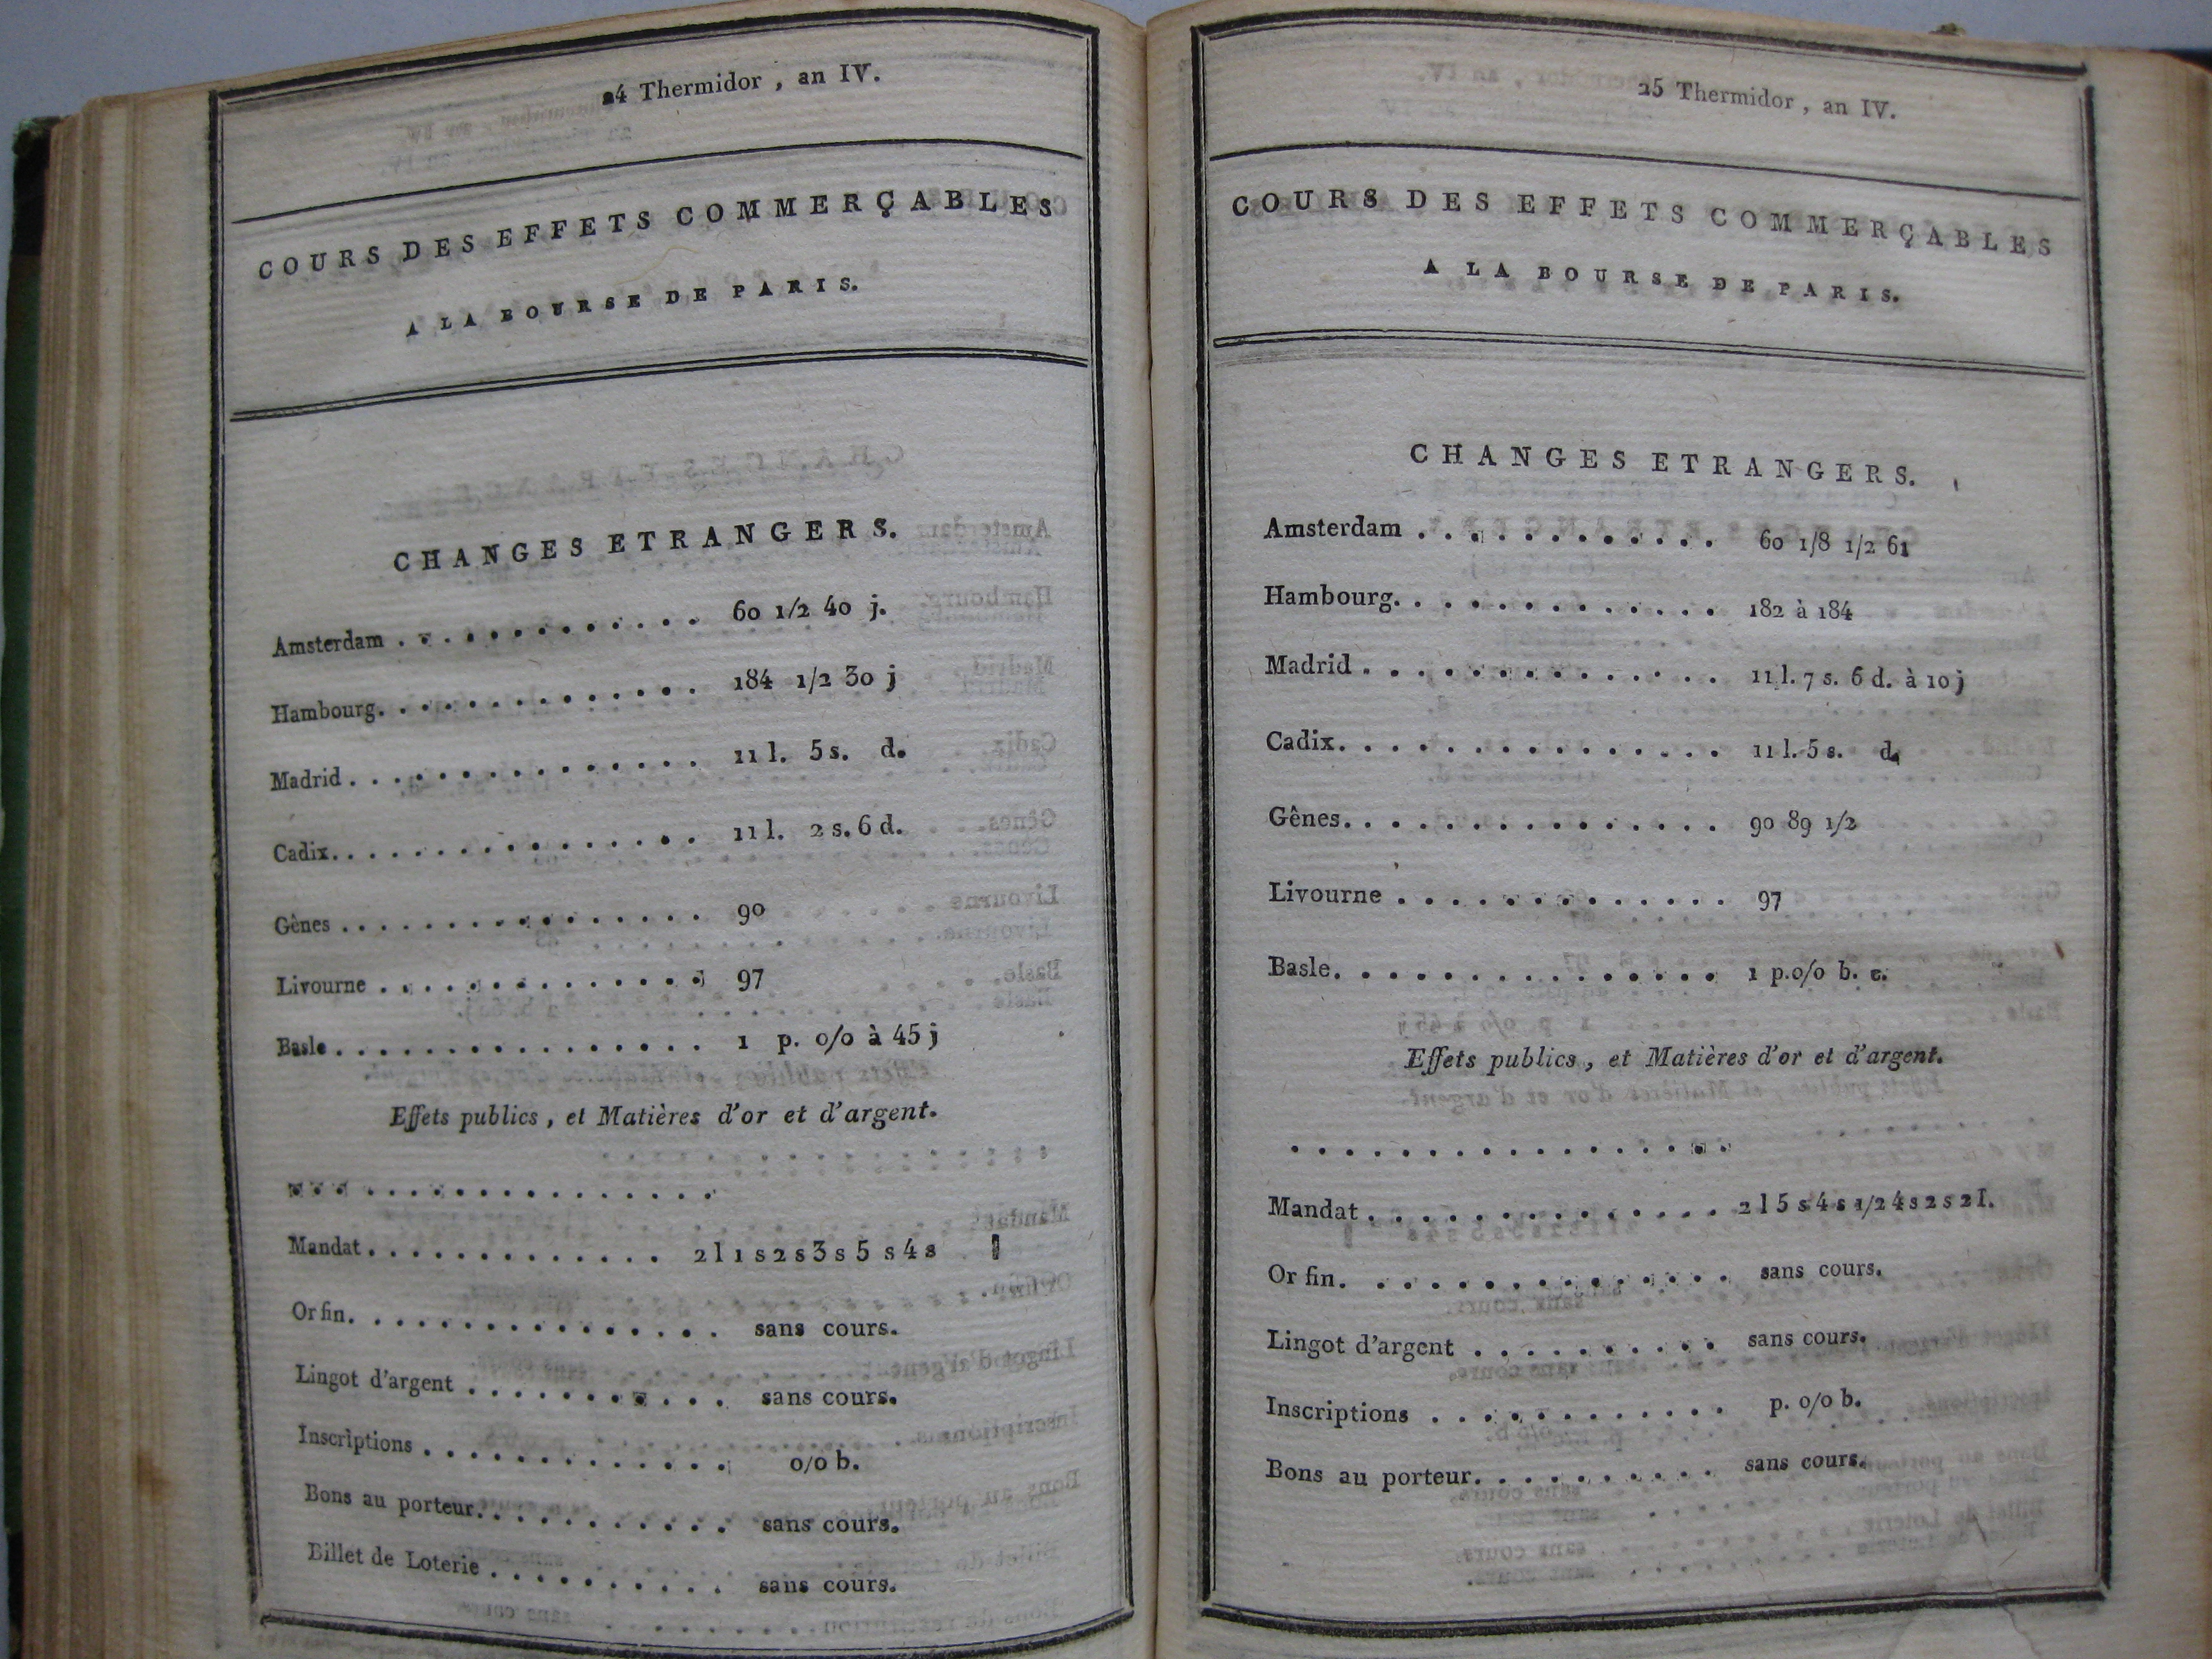 24 Thermidor, an IV.
COURS DES EFFETS COMMERÇABLES
A LA BOURSE DE PARIS.
CHANGES ETRANGERS.
Amsterdam . . . . . . . . . . . . . 60 1/2 40 j.
Hambourg. . . . . . . . . . . . . 184 1/2 30 j
Madrid . . . . . . . . . . . . . . 11 l. 5 s. d.
Cadix. . . . . . . . . . . . . . . 11 l. 2 s. 6 d.
Gênes . . . . . . . . . . . . . . 90
Livourne . . . . . . . . . . . . . 97
Basle . . . . . . . . . . . . . . 1 p. 0/0 à 45 j
Effets publics, et Matières d'or et d'argent.
. . . . . . . . . . . . . . . .
Mandat . . . . . . . . . . . . 2 l 1 s 2 s 3 s 5 s 4 s
Or fin. . . . . . . . . . . . . . sans cours.
Lingot d'argent . . . . . . . . . . sans cours.
Inscriptions . . . . . . . . . . . . 0/0 b.
Bons au porteur. . . . . . . . . . sans cours.
Billet de Loterie . . . . . . . . . sans cours.
25 Thermidor, an IV.
COURS DES EFFETS COMMERÇABLES
A LA BOURSE DE PARIS.
CHANGES ETRANGERS.
Amsterdam . . . . . . . . . . . . 60 1/8 1/2 61
Hambourg. . . . . . . . . . . . . 182 à 184
Madrid . . . . . . . . . . . . . . 11 l. 7 s. 6 d. à 10 j
Cadix. . . . . . . . . . . . . . . 11 l. 5 s. d.
Gênes. . . . . . . . . . . . . . . 90 89 1/2
Livourne . . . . . . . . . . . . . 97
Basle. . . . . . . . . . . . . . . 1 p. 0/0 b. c.
Effets publics, et Matières d'or et d'argent.
. . . . . . . . . . . . . . . . .
Mandat . . . . . . . . . . . . . . 2 l 5 s 4 s 1/2 4 s 2 s 2 l.
Or fin. . . . . . . . . . . . . . sans cours.
Lingot d'argent . . . . . . . . . . sans cours.
Inscriptions . . . . . . . . . . . . p. 0/0 b.
Bons au porteur. . . . . . . . . . sans cours.